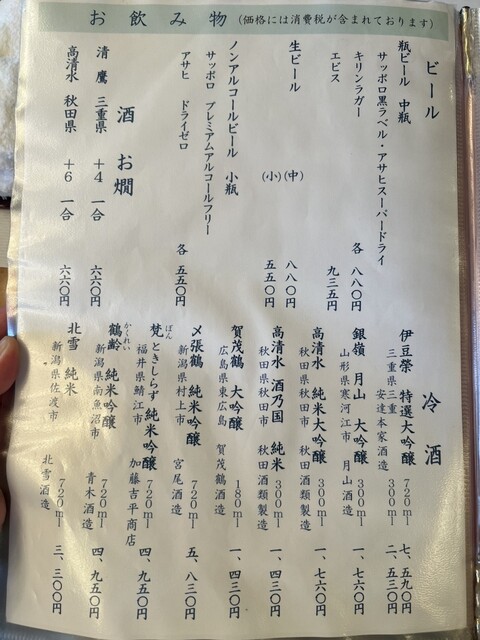 お飲み物 (価格には消費税が含まれております)
ビール
瓶ビール 中瓶
サッポロ黒ラベル・アサヒスーパードライ
各 八八〇円
キリンラガー
エビス
九三五円
生ビール
(中) 八八〇円
(小) 五五〇円
ノンアルコールビール 小瓶
サッポロ プレミアムアルコールフリー
アサヒ ドライゼロ
各 五五〇円
酒 お燗
清鷹 三重県 +4 一合 六六〇円
高清水 秋田県 +6 一合 六六〇円
冷酒
伊豆榮 特選大吟醸 720ml 七、五九〇円
三重県三重 安達本家酒造 300ml 二、五三〇円
銀嶺 月山 大吟醸 300ml 一、七六〇円
山形県寒河江市 月山酒造
高清水 純米大吟醸 300ml 一、七六〇円
秋田県秋田市 秋田酒類製造
高清水 酒乃国 純米 300ml 一、四三〇円
秋田県秋田市 秋田酒類製造
賀茂鶴 大吟醸 180ml 一、四三〇円
広島県東広島 賀茂鶴酒造
〆張鶴 純米吟醸 720ml 五、八三〇円
新潟県村上市 宮尾酒造
ぼん
梵 ときしらず 純米吟醸 720ml 四、九五〇円
福井県鯖江市 加藤吉平商店
かくれい
鶴齢 純米吟醸 720ml 四、九五〇円
新潟県南魚沼市 青木酒造
北雪 純米 720ml 三、三〇〇円
新潟県佐渡市 北雪酒造